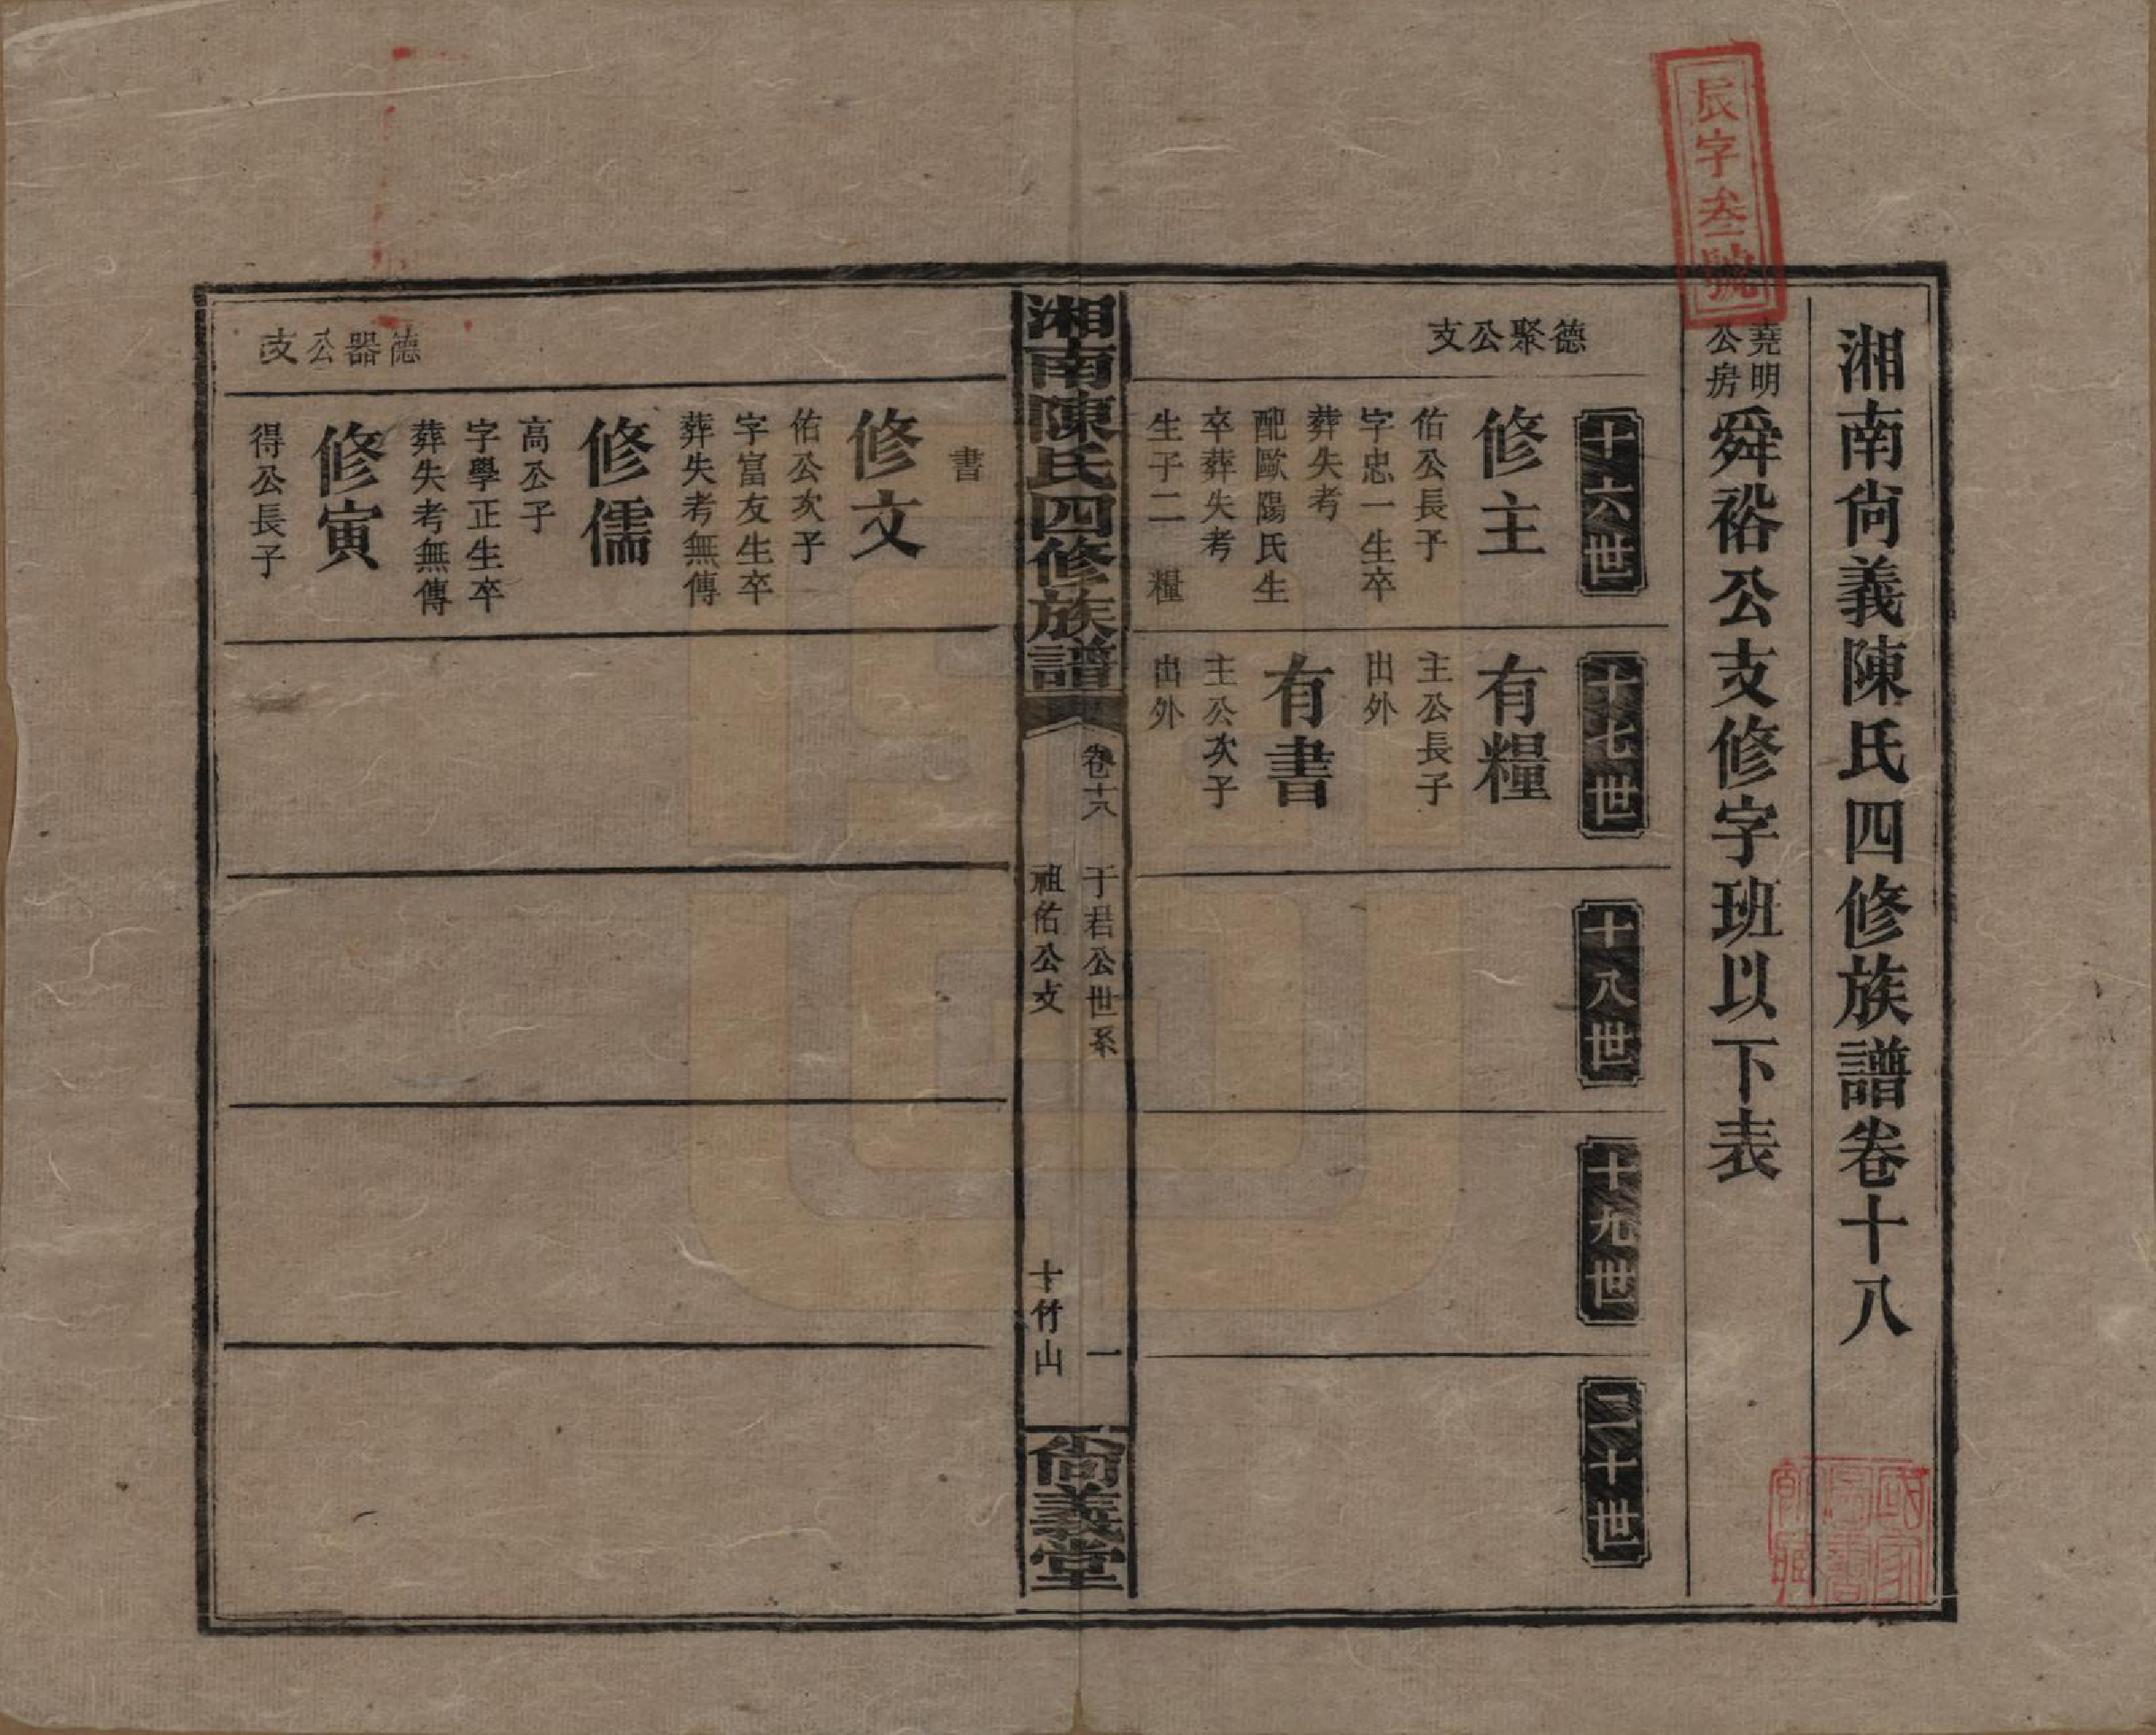 湘南尙義陳氏四修族譜卷十八
堯明
公房
舜裕公支修字班以下表
辰字叁號
德聚公支
十六世
修主
佑公長子
字忠一生卒
葬失考
配歐陽氏生
卒葬失考
生子二 糧
十七世
有糧
主公長子
出外
有書
主公次子
出外
十八世
十九世
二十世
湘南陳氏四修族譜
卷十八
于君公世系
一
祖佑公支
十竹山
尙義堂
書
修文
佑公次子
字富友生卒
葬失考無傳
修儒
高公子
字學正生卒
葬失考無傳
德器公支
修寅
得公長子